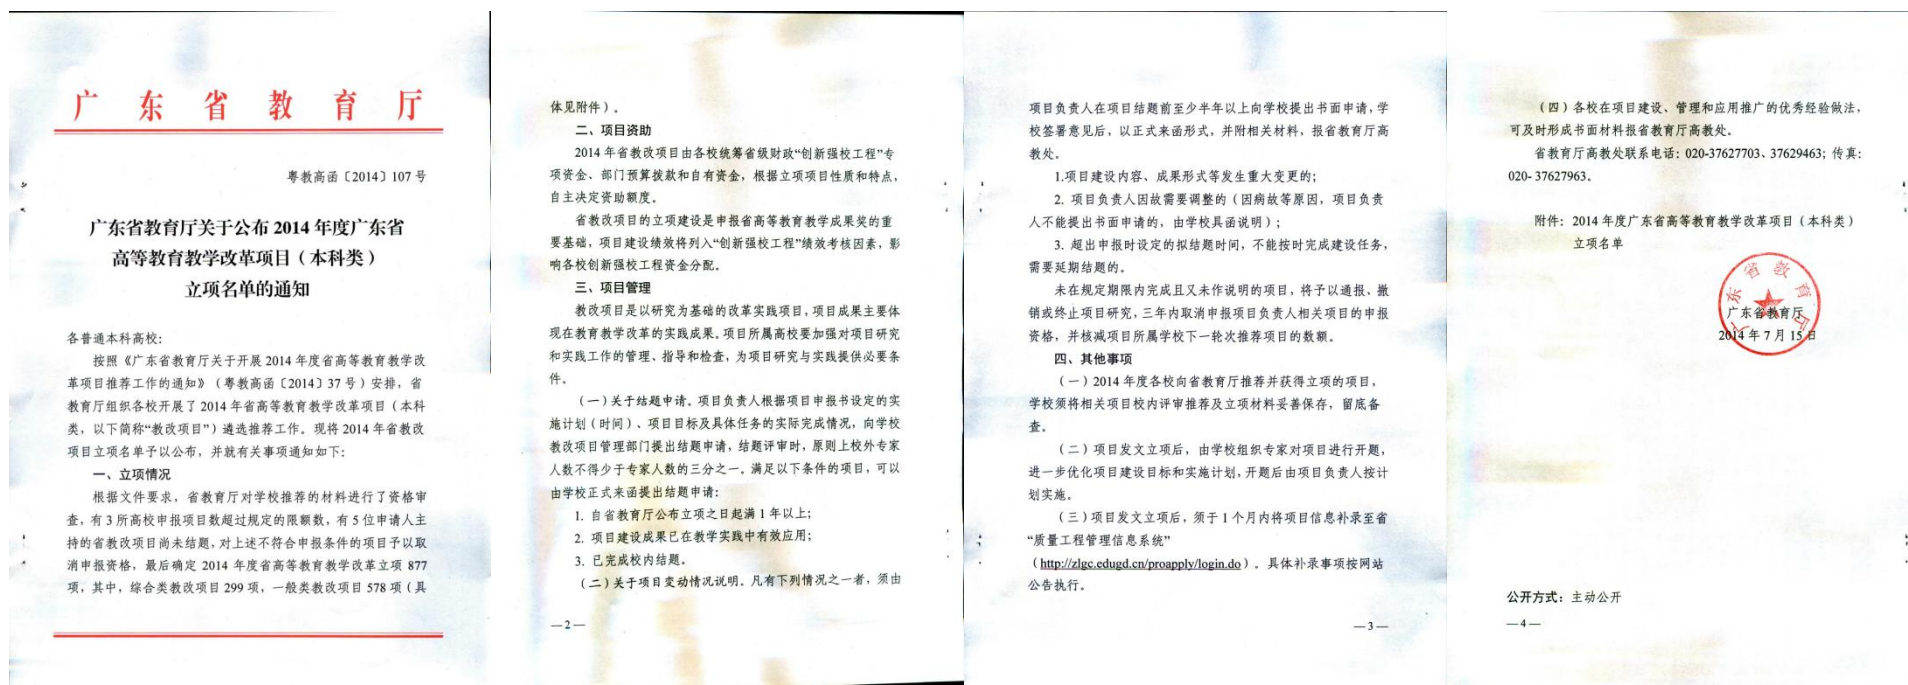 广东省教育厅
粤教高函〔2014〕107号
广东省教育厅关于公布2014年度广东省
高等教育教学改革项目（本科类）
立项名单的通知
各普通本科高校：
按照《广东省教育厅关于开展2014年度省高等教育教学改
革项目推荐工作的通知》（粤教高函〔2014〕37号）安排，省
教育厅组织各校开展了2014年省高等教育教学改革项目（本科
类，以下简称“教改项目”）遴选推荐工作。现将2014年省教改
项目立项名单予以公布，并就有关事项通知如下：
一、立项情况
根据文件要求，省教育厅对学校推荐的材料进行了资格审
查，有3所高校申报项目数超过规定的限额数，有5位申请人主
持的省教改项目尚未结题，对上述不符合申报条件的项目予以取
消申报资格，最后确定2014年度省高等教育教学改革立项877
项，其中，综合类教改项目299项，一般类教改项目578项（具
体见附件）。
二、项目资助
2014年省教改项目由各校统筹省级财政“创新强校工程”专
项资金、部门预算拨款和自有资金，根据立项项目性质和特点，
自主决定资助额度。
省教改项目的立项建设是申报省高等教育教学成果奖的重
要基础，项目建设绩效将列入“创新强校工程”绩效考核因素，影
响各校创新强校工程资金分配。
三、项目管理
教改项目是以研究为基础的改革实践项目，项目成果主要体
现在教育教学改革的实践成果。项目所属高校要加强对项目研究
和实践工作的管理、指导和检查，为项目研究与实践提供必要条
件。
（一）关于结题申请。项目负责人根据项目申报书设定的实
施计划（时间）、项目目标及具体任务的实际完成情况，向学校
教改项目管理部门提出结题申请，结题评审时，原则上校外专家
人数不得少于专家人数的三分之一。满足以下条件的项目，可以
由学校正式来函提出结题申请：
1. 自省教育厅公布立项之日起满1年以上；
2. 项目建设成果已在教学实践中有效应用；
3. 已完成校内结题。
（二）关于项目变动情况说明。凡有下列情况之一者，须由
—2—
项目负责人在项目结题前至少半年以上向学校提出书面申请，学
校签署意见后，以正式来函形式，并附相关材料，报省教育厅高
教处。
1.项目建设内容、成果形式等发生重大变更的；
2. 项目负责人因故需要调整的（因病故等原因，项目负责
人不能提出书面申请的，由学校具函说明）；
3. 超出申报时设定的拟结题时间，不能按时完成建设任务，
需要延期结题的。
未在规定期限内完成且又未作说明的项目，将予以通报、撤
销或终止项目研究，三年内取消申报项目负责人相关项目的申报
资格，并核减项目所属学校下一轮次推荐项目的数额。
四、其他事项
（一）2014年度各校向省教育厅推荐并获得立项的项目，
学校须将相关项目校内评审推荐及立项材料妥善保存，留底备
查。
（二）项目发文立项后，由学校组织专家对项目进行开题，
进一步优化项目建设目标和实施计划，开题后由项目负责人按计
划实施。
（三）项目发文立项后，须于1个月内将项目信息补录至省
“质量工程管理信息系统”
（http://zlgc.edugd.cn/proapply/login.do）。具体补录事项按网站
公告执行。
—3—
（四）各校在项目建设、管理和应用推广的优秀经验做法，
可及时形成书面材料报省教育厅高教处。
省教育厅高教处联系电话：020-37627703、37629463；传真：
020- 37627963。
附件：2014年度广东省高等教育教学改革项目（本科类）
立项名单
广东省教育厅
广东省教育厅
2014年7月15日
公开方式：主动公开
—4—